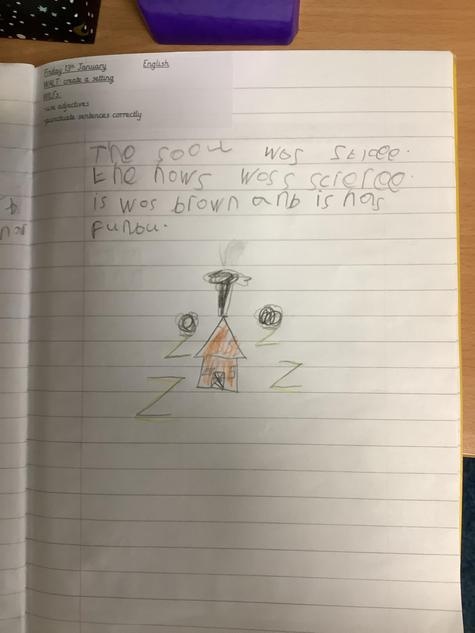 Friday 13th January English
WALT: create a setting
WILFs:
-use adjectives
-punctuate sentences correctly
The was
the hows wos
is wos brown anb is has
funbu.